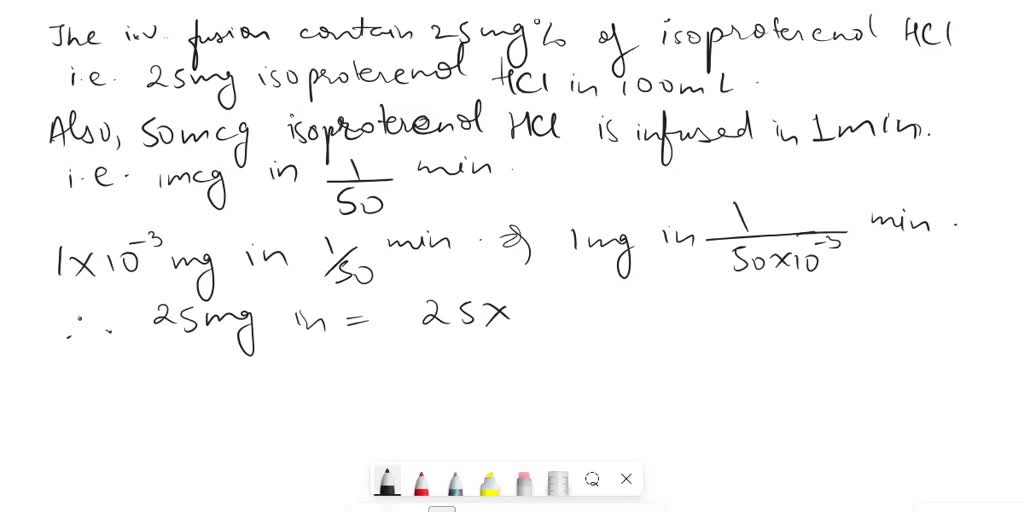 The inv. fusion contain 25mg% of isoproterenol HCl
i.e. 25mg isoproterenol HCl in 100mL.
Also, 50mcg isoproterenol HCl is infused in 1min.
i.e. 1mcg in 1/50 min.
1×10⁻³ mg in 1/50 min. ⇒ 1mg in 1/50×10⁻³ min.
∴ 25mg in = 25×